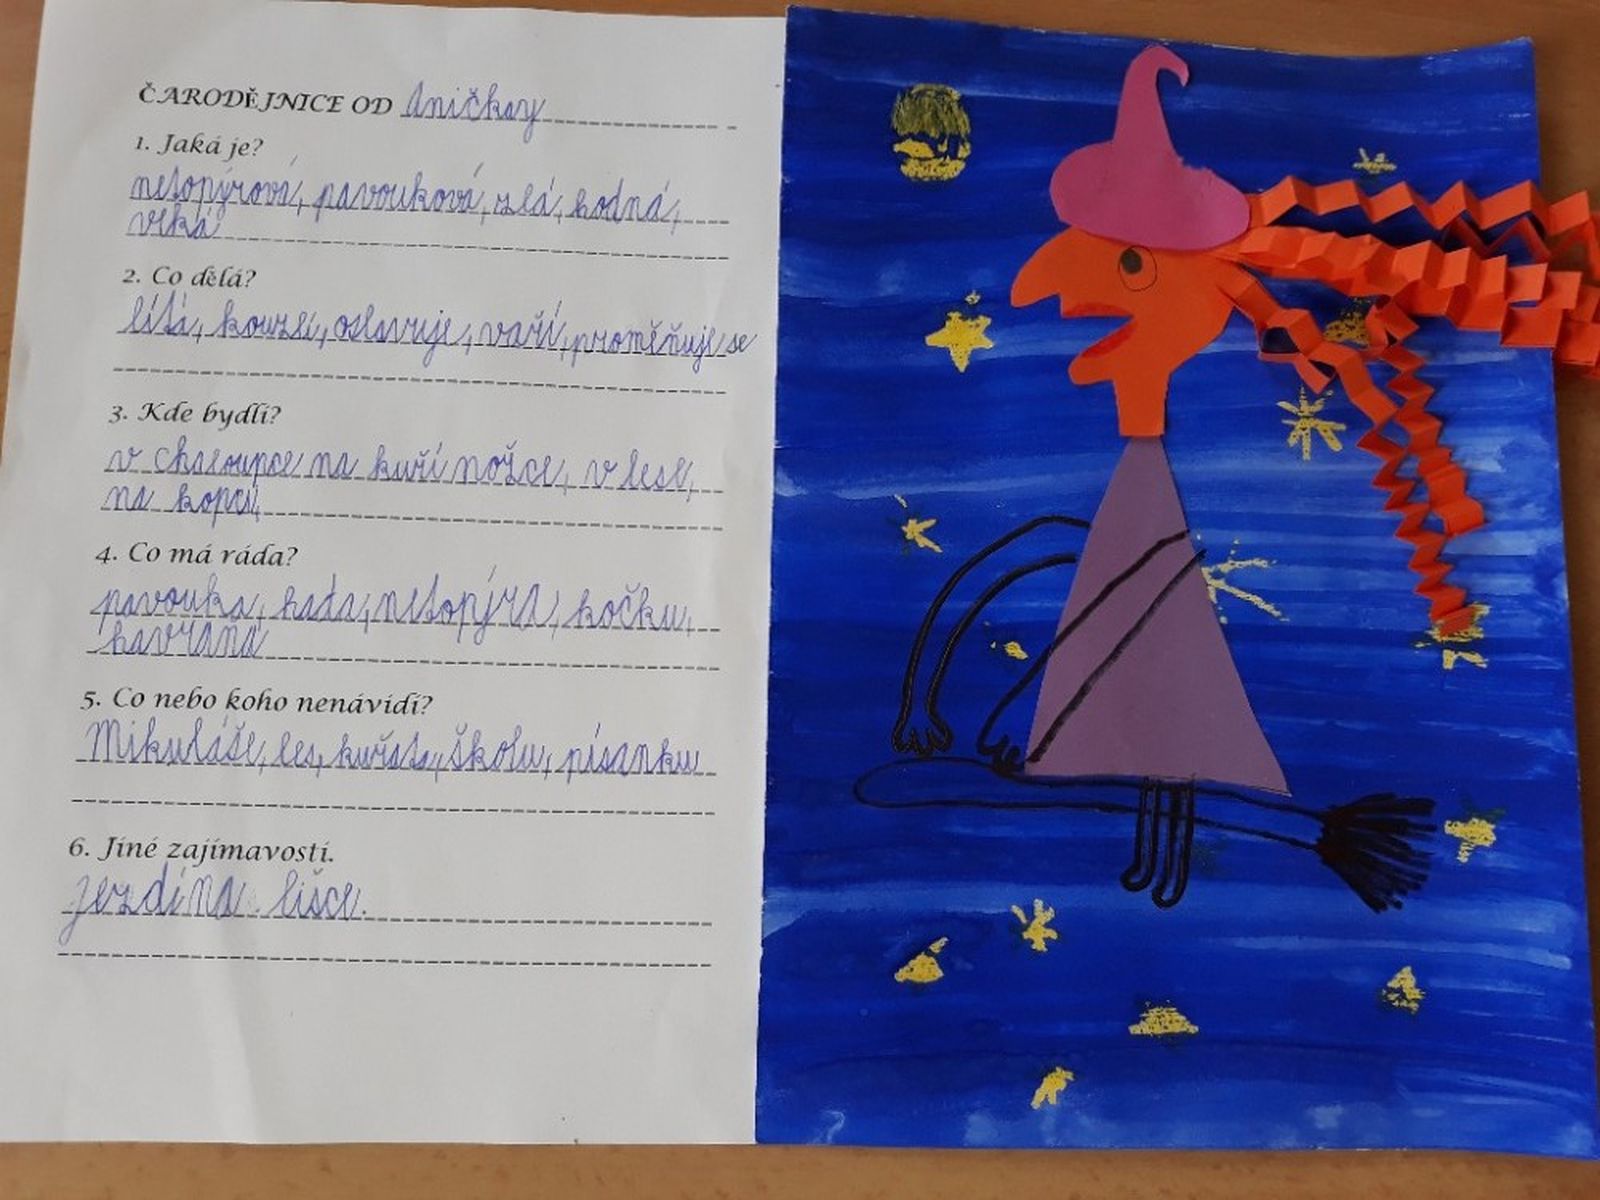 ČARODĚJNICE OD Aničky
1. Jaká je?
netopýrová, pavouková, zlá, hodná,
2. Co dělá?
lítá, kouzlí, oslavuje, vaří, proměňuje se
3. Kde bydlí?
v chaloupce na kuří nožce, v lese,
na kopci,
4. Co má ráda?
pavouka, hada, netopýra, kočku,
havrana
5. Co nebo koho nenávidí?
Mikuláše, les, kuřata, školu, písanku
6. Jiné zajímavosti.
jezdí na lišce.